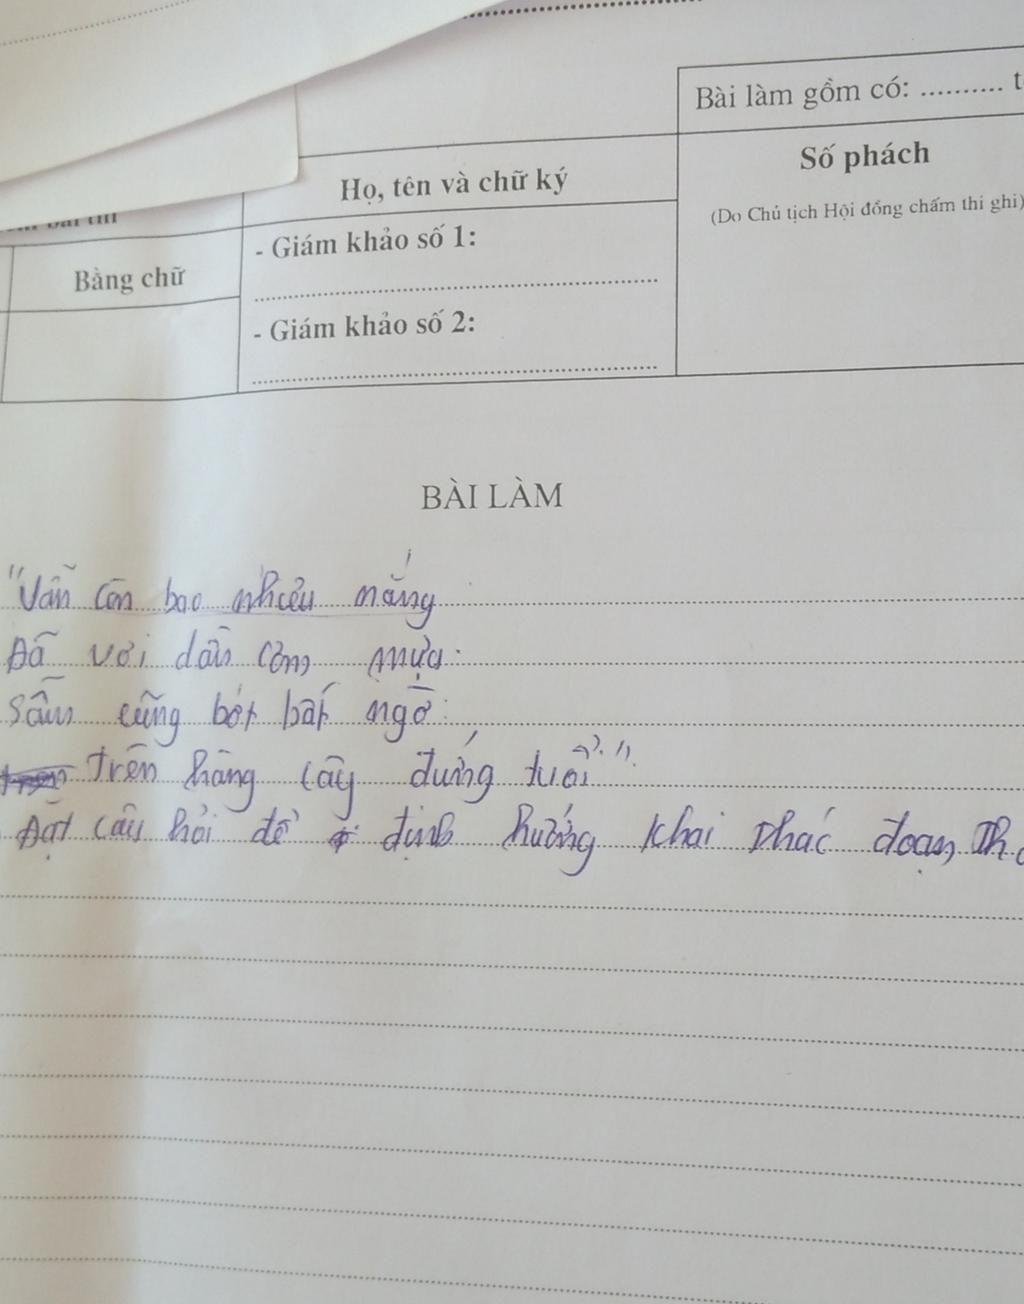 Bài làm gồm có: .......... t
Số phách
(Do Chủ tịch Hội đồng chấm thi ghi)
Họ, tên và chữ ký
- Giám khảo số 1:
- Giám khảo số 2:
bài thi
Bằng chữ
BÀI LÀM
"Vẫn còn bao nhiêu nắng
Đã vơi dần cơn mưa
Sấm cũng bớt bất ngờ
Trên hàng cây đứng tuổi"
Đặt câu hỏi để định hướng khai thác đoạn Th